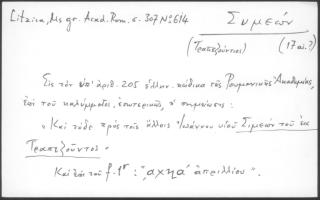 Litzica, Ms gr. Acad. Rom. σ. 307 Nº 614
Συμεών
(Τραπεζούντιος) (17 αἰ.?)
Εἰς τὸν ὑπ' ἀριθ. 205 ἑλλην. κώδικα τῆς Ρουμανικῆς Ἀκαδημίας,
ἐπὶ τοῦ καλύμματος, ἐσωτερικῶς, ἡ σημείωσις:
"Καὶ τόδε πρὸς τοῖς ἄλλοις Ἰωάννου υἱοῦ Σιμεὼν τοῦ ἐκ
Τραπεζοῦντος.
Καὶ ἐπὶ τοῦ f. 1r : "αχπα' ἀπριλλίου".